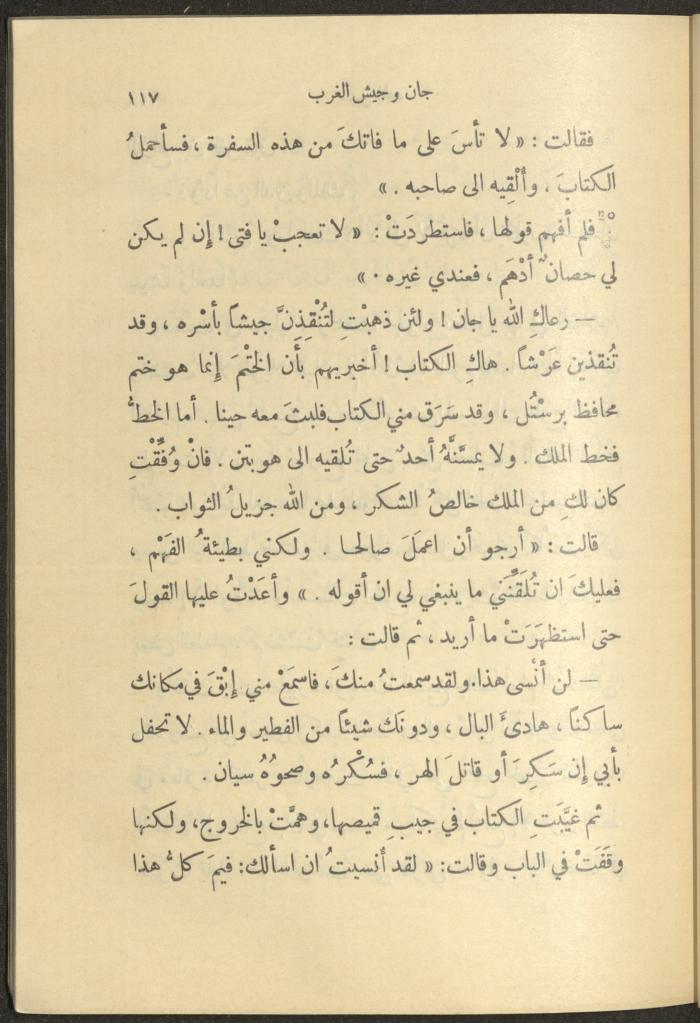 جان وجيش الغرب ١١٧
فقالت : « لا تأسَ على ما فاتكَ من هذه السفرة ، فسأحملُ
الكتابَ ، وأُلْقِيه الى صاحبه . »
فلم أفهم قولها ، فاستطردَتْ : « لا تعجبْ يا فتى ! إِن لم يكن
لي حصانٌ أدْهَم ، فعندي غيره . »
— رعاكِ الله يا جان ! ولئن ذهبْتِ لتُنْقِذِنَّ جيشاً بأسْره ، وقد
تُنقذين عَرْشاً . هاكِ الكتاب ! أخبريهم بأن الختْمَ إِنما هو ختم
محافظ برسْتُل ، وقد سَرَق مني الكتاب فلبثَ معه حينا . أما الخطُّ
فخط الملك . ولا يمسَّنَّهُ أحدٌ حتى تُلقيه الى هوبتن . فانْ وُفِّقْتِ
كان لكِ من الملك خالصُ الشكر ، ومن الله جزيلُ الثواب .
قالت : « أرجو أن اعمَلَ صالحا . ولكني بطيئةُ الفَهْم ،
فعليكَ ان تُلَقِّنَني ما ينبغي لي ان أقوله . » وأعَدْتُ عليها القولَ
حتى استظهَرَتْ ما أريد ، ثم قالت :
— لن أنْسى هذا. ولقد سمعتُ منكَ، فاسمَعْ مني إِبْقَ في مكانك
ساكناً ، هادئَ البال ، ودونَك شيئاً من الفطير والماء . لا تحفل
بأبي إِن سَكِرَ أو قاتلَ الهر ، فسُكْرُه وصحوُهُ سيان .
ثم غيَّبَتِ الكتاب في جيبِ قميصها، وهمَّتْ بالخروج، ولكنها
وقَفَتْ في الباب وقالت: « لقد أنسيتُ ان اسألك: فيمَ كلُّ هذا